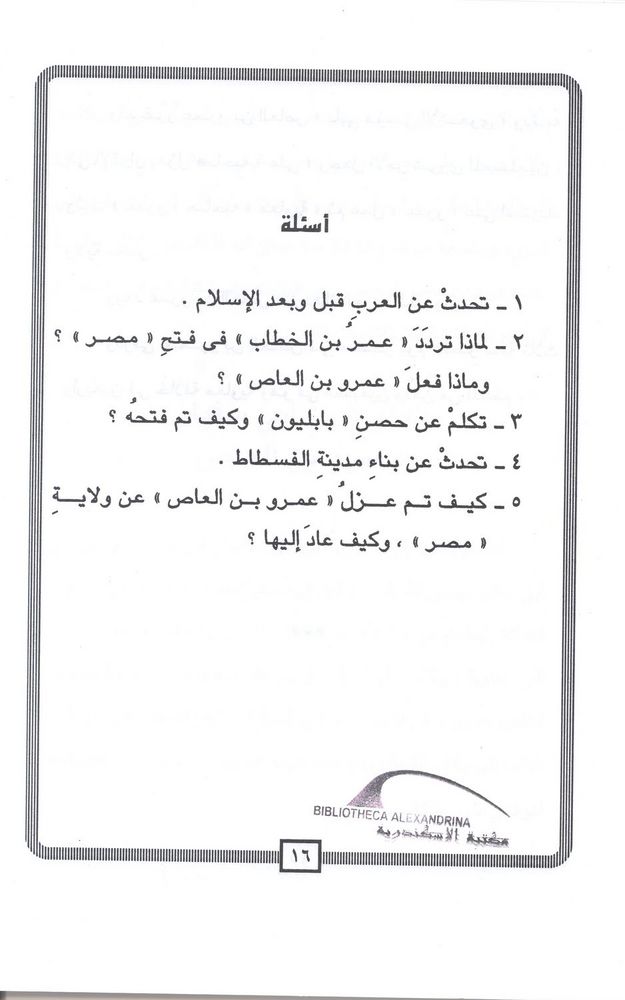 أسئلة
١ ـ تحدثْ عن العربِ قبل وبعد الإسلام .
٢ ـ لماذا تردَدَ « عمرُ بن الخطاب » فى فتحِ « مصر » ؟
وماذا فعلَ « عمرو بن العاص » ؟
٣ ـ تكلمْ عن حصنِ « بابليون » وكيف تم فتحهُ ؟
٤ ـ تحدثْ عن بناءِ مدينةِ الفسطاط .
٥ ـ كيف تم عزلُ « عمرو بن العاص » عن ولايةِ
« مصر » ، وكيف عادَ إليها ؟
BIBLIOTHECA ALEXANDRINA
مكتبة الاسكندرية
١٦